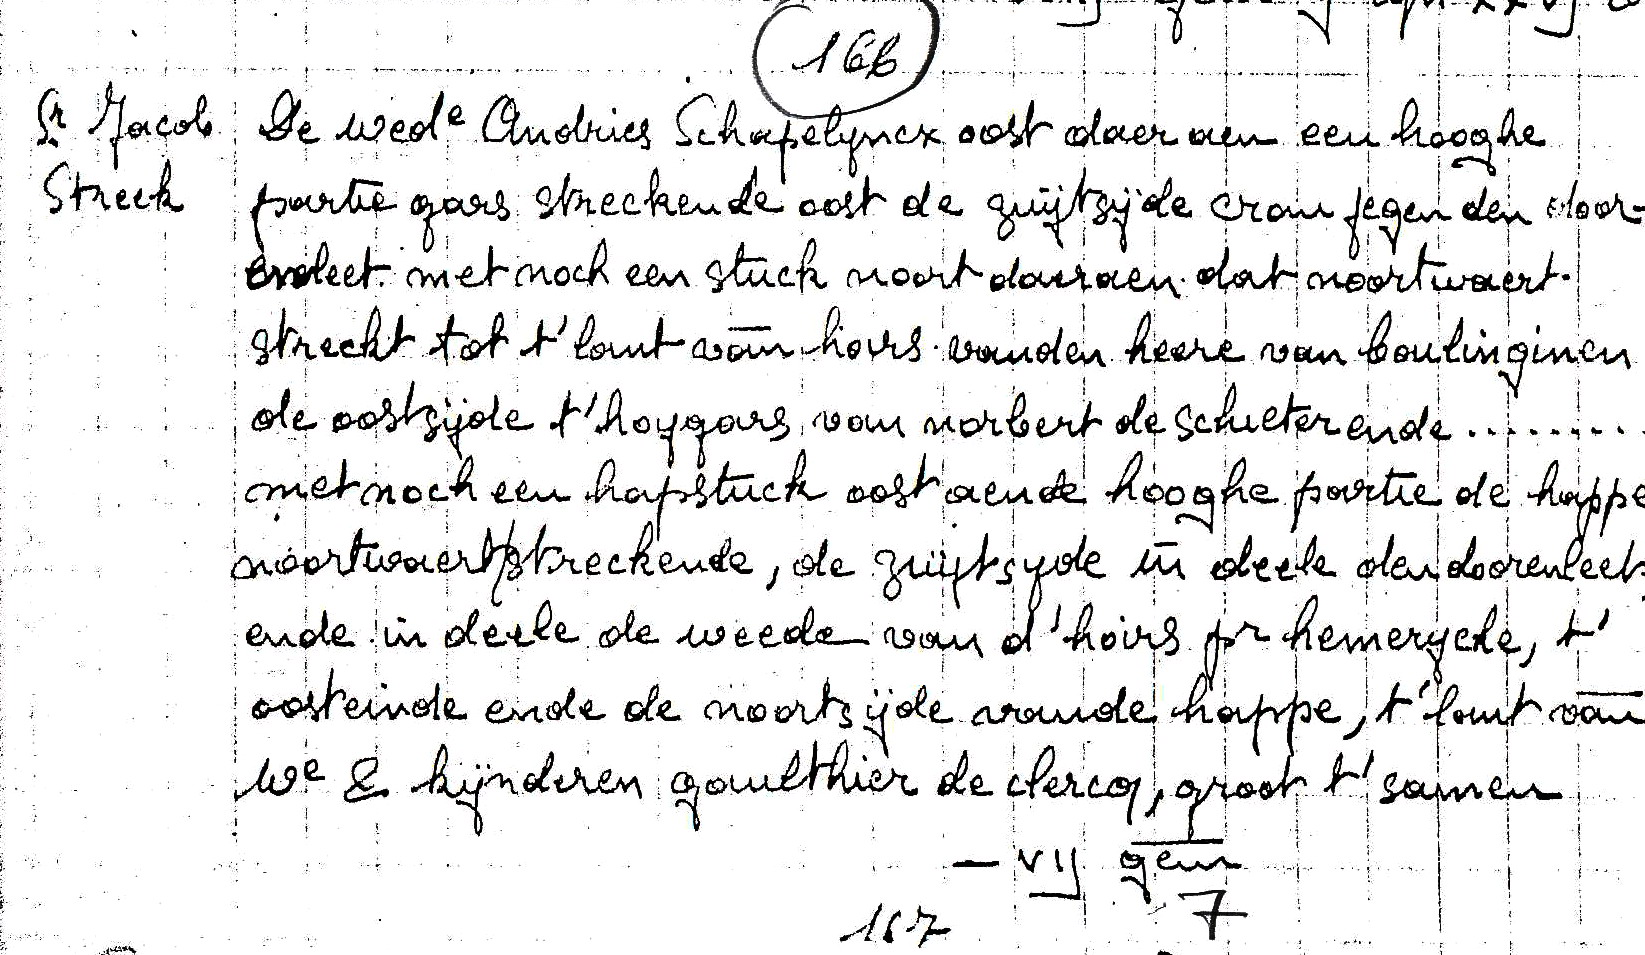 166
Sr Jacob De wede Andries Schapelyncx oost daer aen een hooghe
Streek partie gars streckende oost de zuÿtzÿde cron jegen den door-
enleet. met noch een stuck noort daeraen dat noortwaert.
streckt tot t'lant van hoirs vanden heere van boulinginen
de oostzÿde t'hoygars van norbert de schieter ende .........
met noch een hapstuck oost aende hooghe partie de happe
noortwaert streckende, de zuÿtsyde in deele den doorenleet
ende in deele de weede van d'hoirs pr hemerycke, t'
oosteinde ende de noortsÿde vande happe, t'lant van
We & kÿnderen gaulthier de clercq, groot t'samen
- vij gem
7
167